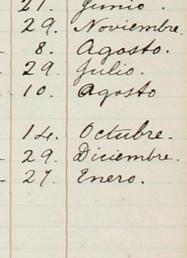 21. Junio.
29. Noviembre.
8. Agosto.
29. Julio.
10. Agosto
14. Octubre.
29. Diciembre.
27. Enero.